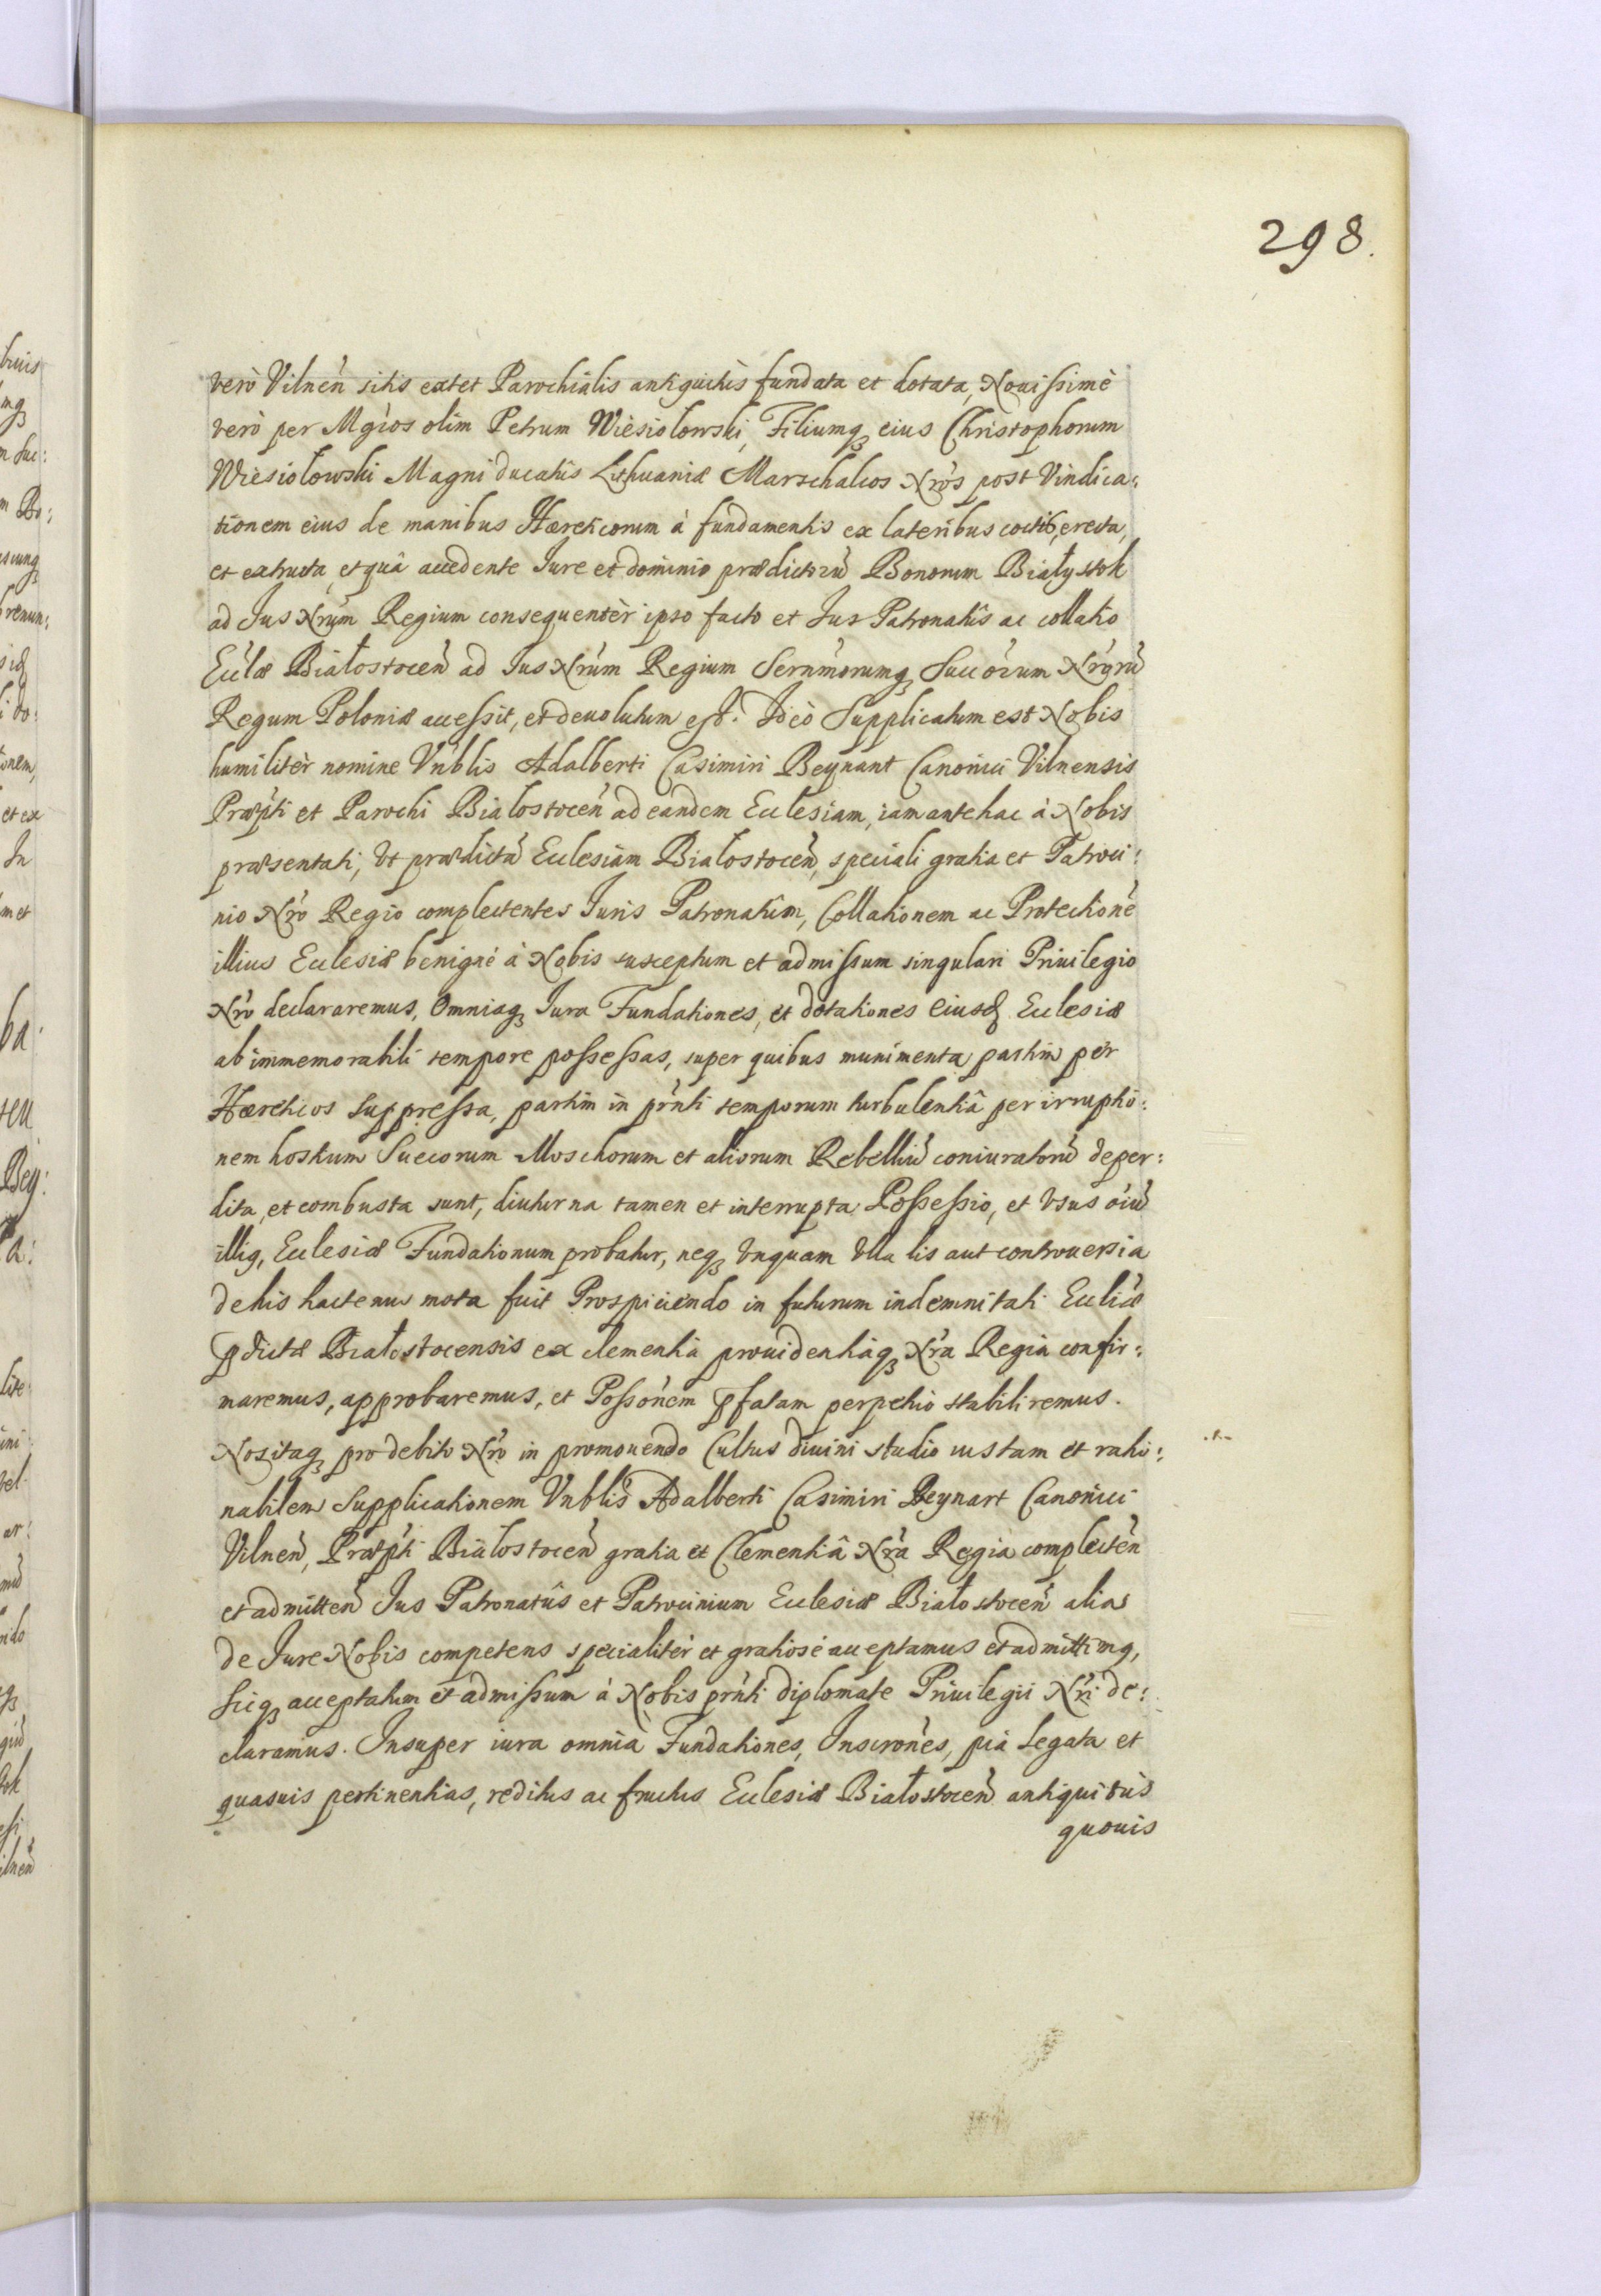 298.
verò Vilneń sitis extet Parochialis antiquitùs fundata et dotata, Nouissimè
verò per Mgios olim Petrum Wiesiołowski, Filiumq̃ eius Christophorum
Wiesiołowski Magni ducatûs Lithuaniæ Marschalcos Nros post Vindica:
tionem eius de manibus Hæreticorum à fundamentis ex lateribus coctis, erecta,
et extructa, et quâ accedente Iure et dominio prædictorũ Bonorum Białystok
ad Jus Nrum Regium consequentèr ipso facto et Jus Patronatûs ac collatio
Ecclæ Białostoceń ad Jus Nrum Regium Sernmorumq̃ Succorum Nrorũ
Regum Poloniæ accessit, et deuolutum est. Ideò Supplicatum est Nobis
humilitèr nomine Vnblis Adalberti Casimiri Beynart Canonici Vilnensis
Præpti et Parochi Białostoceń ad eandem Ecclesiam, iam antehac à Nobis
præsentati, Vt prædictã Ecclesiam Białostoceń, speciali gratia et Patroci:
nio Nro Regio complectentes Iuris Patronatûm, Collationem ac Protectionẽ
illius Ecclesiæ benignè à Nobis susceptum et admissum singulari Priuilegio
Nro declararemus, Omniaq̃ Jura Fundationes, et dotationes eiusd Ecclesiæ
ab immemorabili tempore possessas, super quibus munimenta partim per
Hæreticos suppressa, partim in prnti temporum turbulentiâ per irruptio:
nem hostium Suecorum Moschorum et aliorum Rebelliũ coniuratorũ deper:
dita, et combusta sunt, diuturna tamen et interrupta Possessio, et Vsus oiũ
illig, Ecclesiæ Fundationum probatur, neq̃ Vnquam Vlla lis aut controuersia
de his hactenus mota fuit Prospiciendo in futurum indemnitati Eccliæ
pdictæ Białostocensis ex clementia prouidentiaq̃ Nra Regia confir:
maremus, approbaremus, et Possonem pfatam perpetuo stabiliremus.
Nos itaq̃ pro debito Nro in promouendo Cultus diuini studio iustam et ratio:
nabilem Supplicationem Vnblis Adalberti Casimiri Beynart Canonici
Vilneń, Præpti Białostoceń gratia et Clementiâ Nra Regia complecteń
et admitteń Jus Patronatûs et Patrocinium Ecclesiæ Białostoceń alias
de Jure Nobis competens specialitèr et gratiosè acceptamus et admittimg,
sicq̃ acceptatum et admissum à Nobis prnti diplomate Priuilegii Nri de:
claramus. Insuper iura omnia Fundationes, Inscrones, pia Legata et
quasuis pertinentias, reditus ac fructus Ecclesiæ Białostoceń antiquitùs
quouis